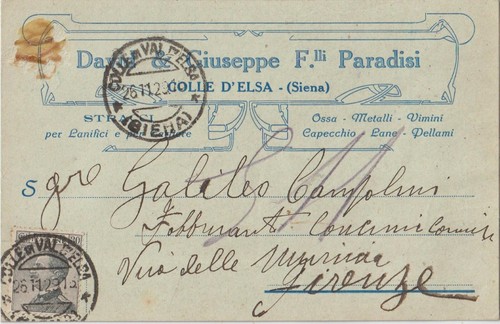 Dav & Giuseppe F.lli Paradisi
COLLE D'ELSA - (Siena)
COLLE DI VAL D'ELSA
26.11.23
(SIENA)
STRACCI
per Lanifici e per
Ossa - Metalli - Vimini
Capecchio Lane - Pellami
S gre Galileo Campolmi
Fabbricante Concimi
Via delle
Firenze
COLLE DI VAL D'ELSA
26.11.23